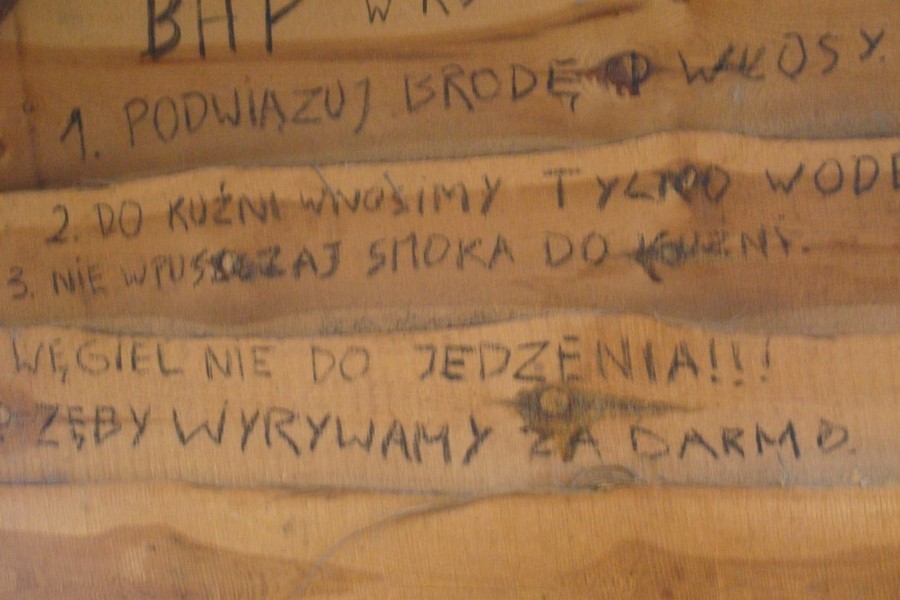 BHP W
1. PODWIĄZUJ BRODĘ WŁOSY.
2. DO KUŹNI WNOSIMY TYLKO WODĘ
3. NIE WPUSZCZAJ SMOKA DO KUŹNI.
WĘGIEL NIE DO JEDZENIA!!!
ZĘBY WYRYWAMY ZA DARMO.